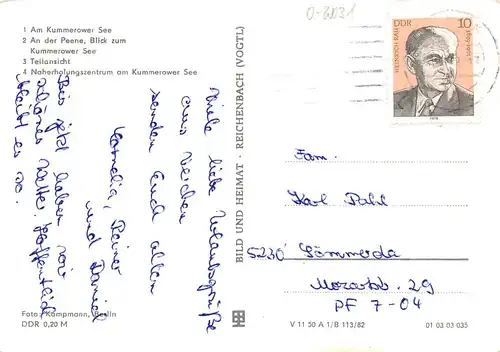 1 Am Kummerower See
2 An der Peene, Blick zum
Kummerower See
3 Teilansicht
4 Naherholungszentrum am Kummerower See
Viele liebe Urlaubsgrüße
aus
senden Euch allen
Cornelia, Rainer
und Daniel
Bis jetzt haben wir
Wetter. Hoffentlich
bleibt es so.
Foto: Kampmann, Berlin
DDR 0,20 M
BILD UND HEIMAT · REICHENBACH (VOGTL)
0-3031
DDR 10
HEINRICH RAU
1978
Fam.
Karl Pahl
5230 Sömmerda
29
PF 7-04
V 11 50 A 1/B 113/82
01 03 03 035